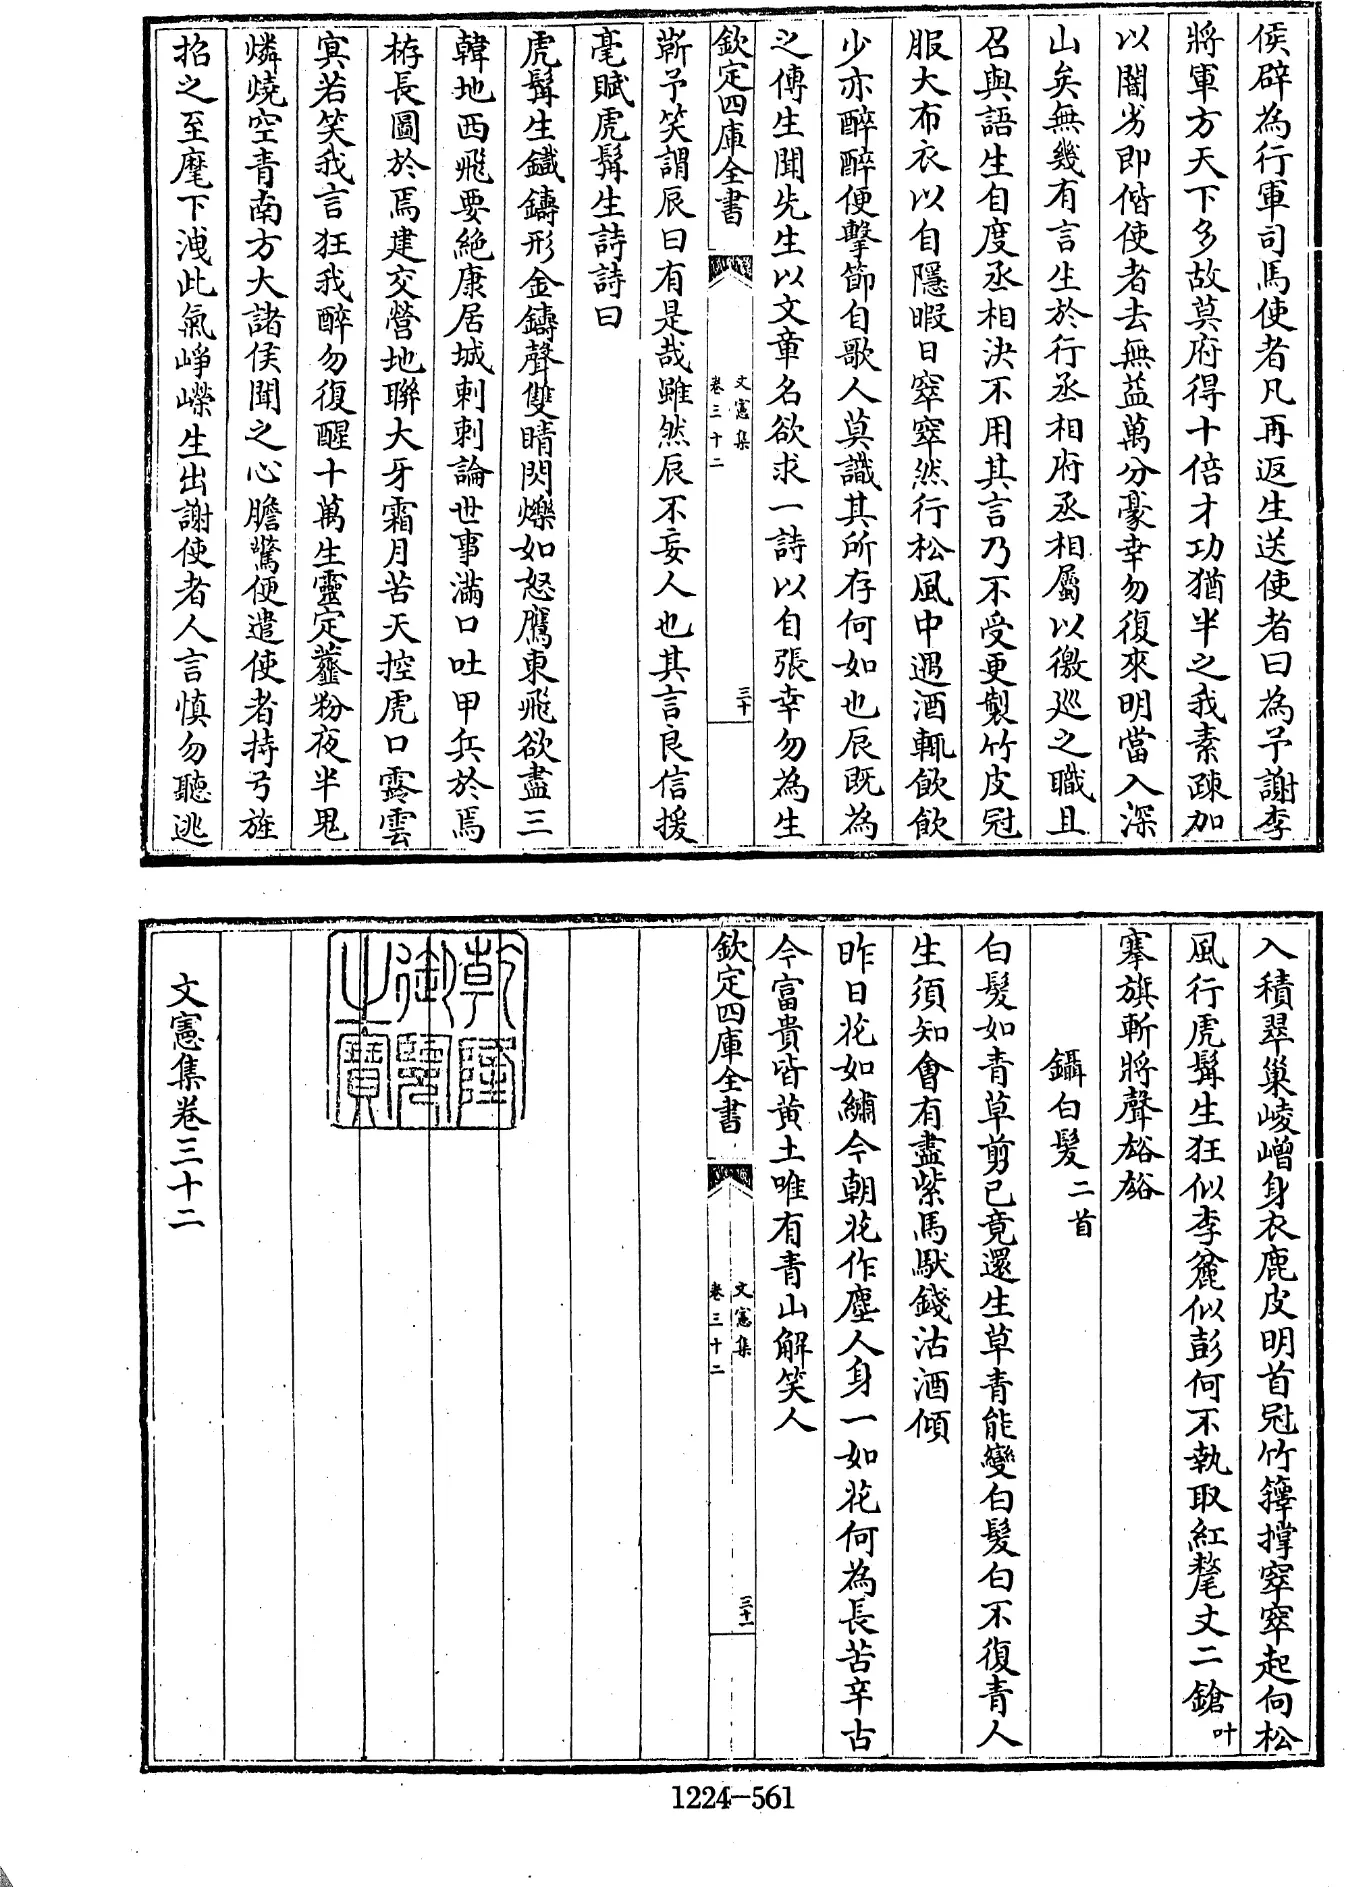 侯辟為行軍司馬使者凡再返生送使者曰為予謝李
將軍方天下多故莫府得十倍才功猶半之我素疎加
以闇劣即偕使者去無益萬分豪幸勿復來明當入深
山矣無幾有言生於行丞相府丞相屬以徼巡之職且
召與語生自度丞相決不用其言乃不受更製竹皮冠
服大布衣以自隱暇日窣窣然行松風中遇酒輒飲飲
少亦醉醉便擊節自歌人莫識其所存何如也辰既為
之傳生聞先生以文章名欲求一詩以自張幸勿為生
欽定四庫全書
文憲集
卷三十二
三十
靳予笑謂辰曰有是哉雖然辰不妄人也其言良信援
毫賦虎髯生詩詩曰
虎髯生鐵鑄形金鑄聲雙睛閃爍如怒鷹東飛欲盡三
韓地西飛要絶康居城刺刺論世事滿口吐甲兵於焉
栫長圖於焉建交營地聯大牙霜月苦天控虎口霧雲
寘若笑我言狂我醉勿復醒十萬生靈定虀粉夜半鬼
燐燒空青南方大諸侯聞之心膽驚便遣使者持弓旌
招之至麾下洩此氣崢嶸生出謝使者人言慎勿聽逃
入積翠巢崚嶒身衣鹿皮明首冠竹籜撑窣窣起向松
風行虎髯生狂似李麄似彭何不執取紅氂丈二鎗叶
搴旗斬將聲谽谽
鑷白髪二首
白髪如青草剪已竟還生草青能變白髪白不復青人
生須知會有盡紫馬馱錢沽酒傾
昨日花如繡今朝花作塵人身一如花何為長苦辛古
今富貴皆黄土唯有青山解笑人
欽定四庫全書
文憲集
卷三十二
三十一
乾隆御覽之寶
文憲集卷三十二
1224-561